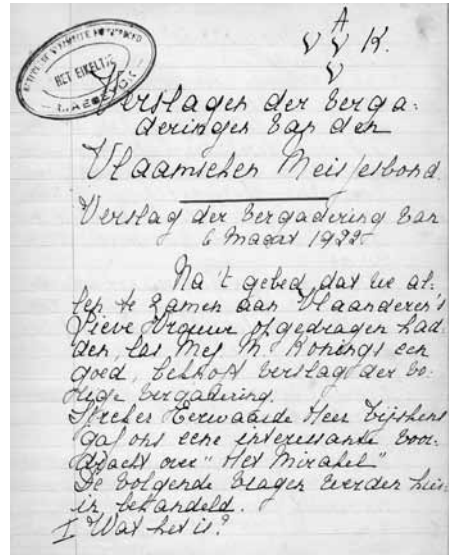 HET EIKELTJE
A
V V K.
V
Verslagen der verga-
deringen van den
Vlaamschen Meisjesbond.
Verslag der vergadering van
6 Maart 1922
Na 't gebed, dat we al-
len te zamen aan Vlaanderen's
Lieve Vrouw opgedragen had-
den, las Mej M. Konings een
goed, beknopt verslag der vo-
rige vergadering.
Eerwaarde Heer
gaf ons eene interessante voor-
dracht over "Het Mirakel"
De volgende vragen werden hier-
in behandeld.
I Wat het is?